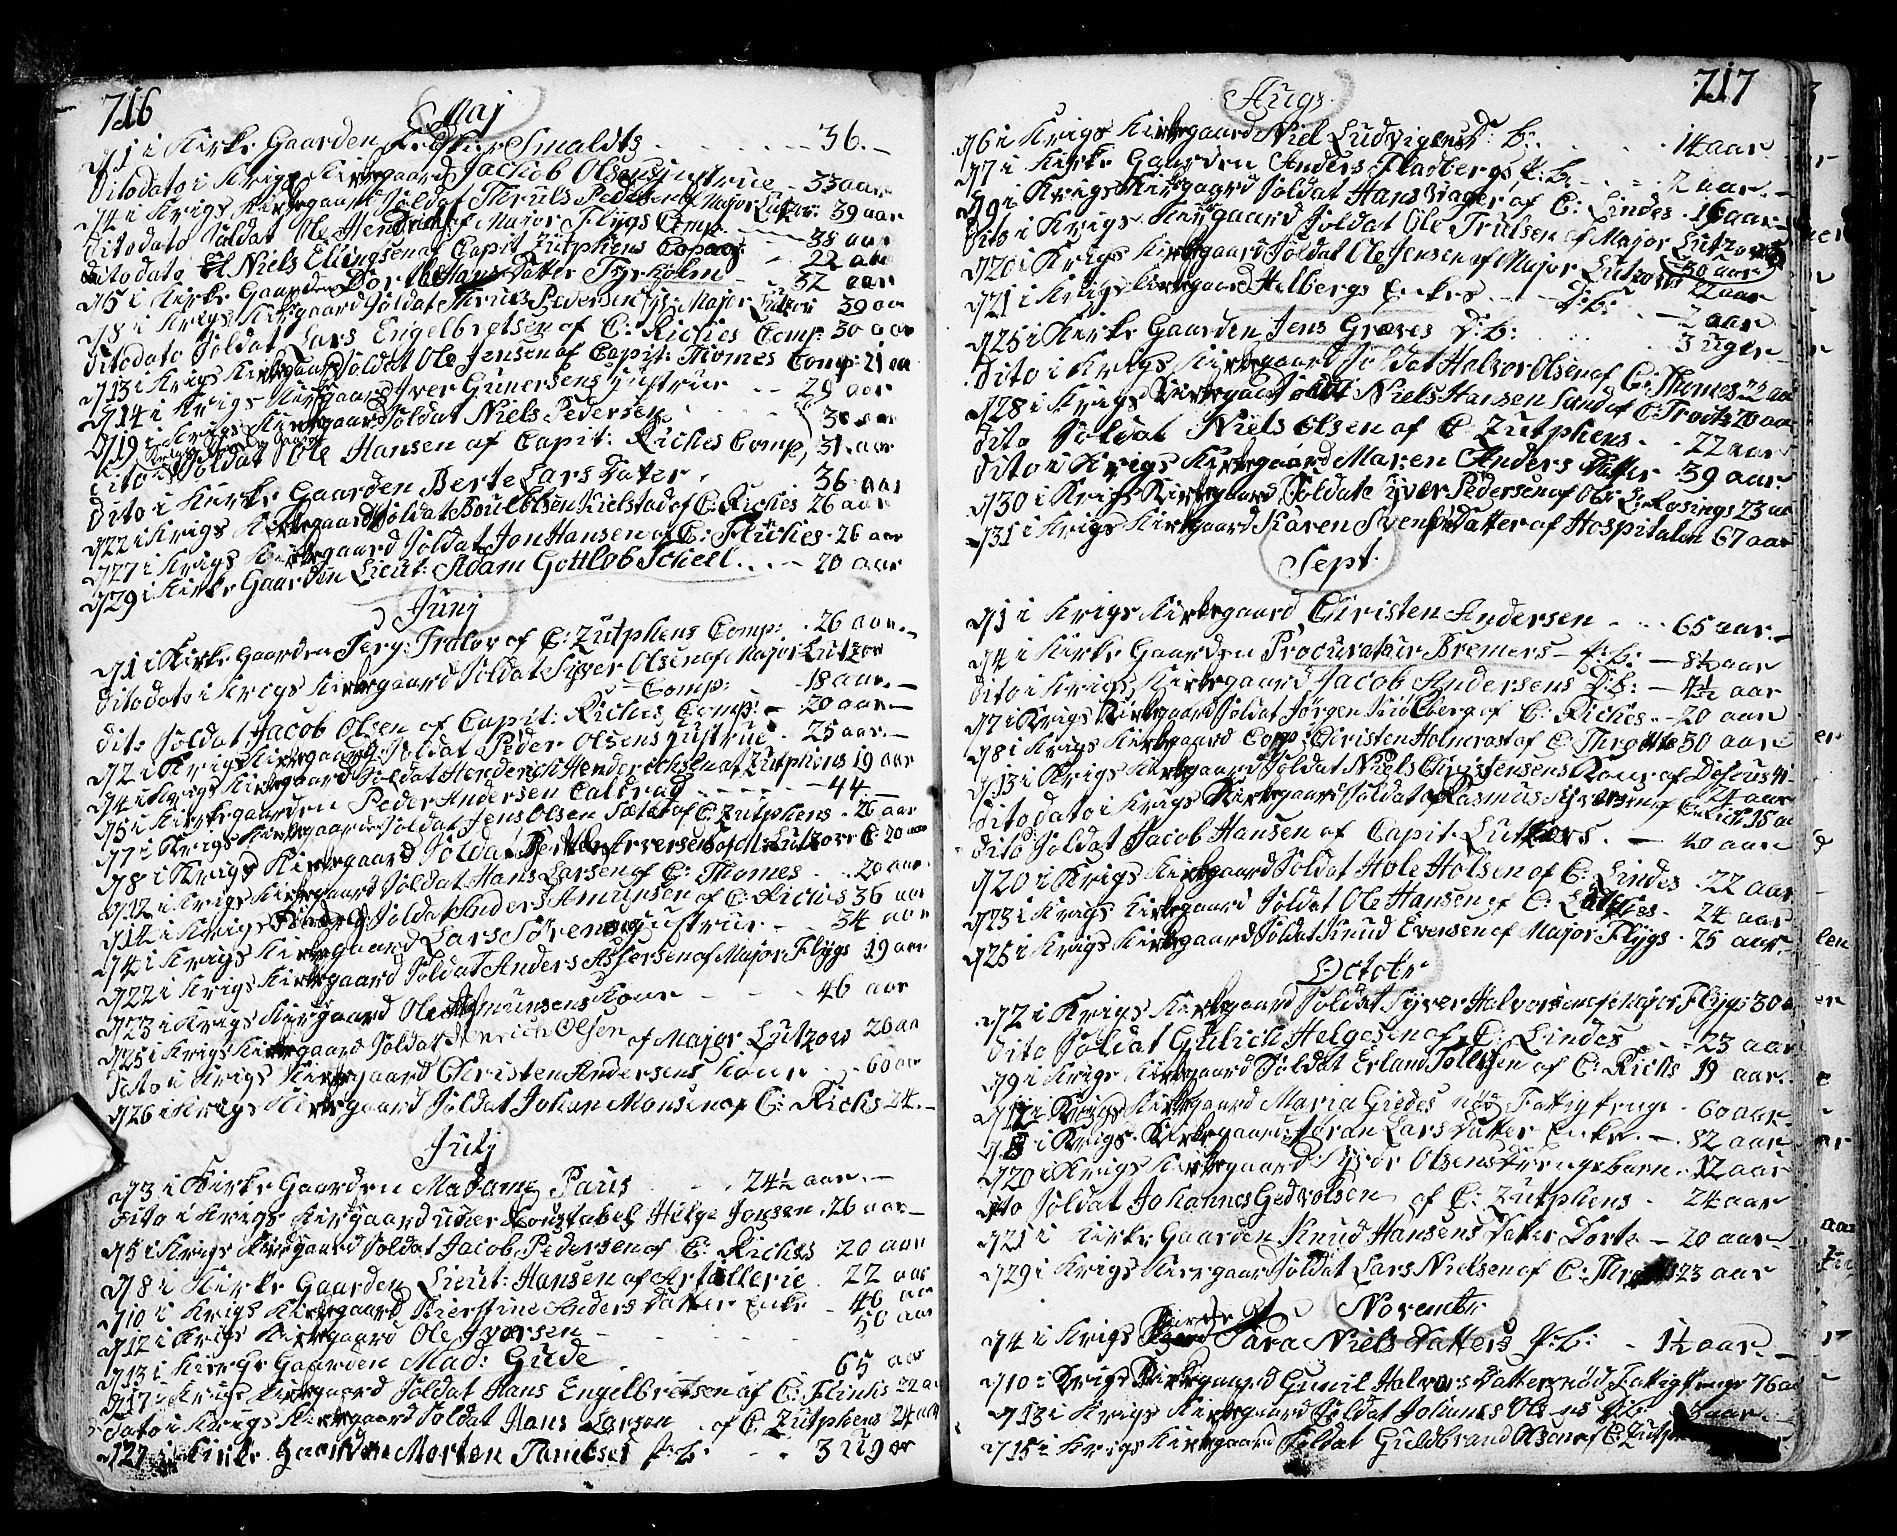 716
Maj
1 i Kirke Gaarden Smaldts 36.
Ditodato i Krigs Kirkegaard Jachob Olsens Hustrue 33 aar
4 i Krigs Kirkegaard Soldat Thruls Pedersen af Major Lutzow 39 aar
Ditodato Soldat Ole af Major Flygs Comp 38 aar
ditodato Niels Ellingsen af Capit Zutphens Comp 22 aar
5 i Kirke Gaarden Dorthe Hans Datter Tyrholm 52 aar
8 i Krigs Kirkegaard Soldat Thruls Pedersen Major Lutzow 39 aar
Ditodato Soldat Lars Engelbretsen af C: Riches Comp: 30 aar
13 i Krigs Kirkegaard Soldat Ole Jensen af Capit: Thomes Comp: 21 aar
14 i Krigs Kirkegaard Iver Gunersens Hustrue 29 aar
19 i Krigs Kirkegaard Soldat Niels Pedersen 30 aar
Soldat Ole Hansen af Capit: Riches Comp, 31 aar
Dito i Kirke Gaarden Berte Lars Dater 36 aar
22 i Krigs Kirkegaard Soldat Boul Olsen Kielstad af C: Riches 26 aar
27 i Krigs Kirkegaard Soldat Jon Hansen af C: Fluches 26 aar
29 i Kirke Gaarden Lieut: Adam Gottlob Schell 20 aar
Junj
1 i Kirke Gaarden Jerg: Tralov af C: Zutphens Comp: 26 aar
Ditodato i Krigs Kirkegaard Soldat Syver Olsen af Major Lutzow
Comp: 18 aar
dito Soldat Jacob Olsen af Capit: Riches Comp: 20 aar
2 i Krigs Kirkegaard Soldat Peder Olsens Hustrue 25 aar
4 i Krigs Kirkegaard Soldat Henderich Henderichsen af Zutphens 19 aar
5 i Kirkegaarden Peder Andersen Calbrad 44
7 i Krigs Kirkegaarde Soldat Jens Olsen af C: Zutphens 26 aar
8 i Krigs Kirkegaard Soldat Iversen af M: Lutzow C: 20 aar
12 i Krigs Kirkegaard Soldat Hans Larsen af C: Thomes 20 aar
14 i Krigs Soldat Anders Amunsen af C: Riches 36 aar
i Krigs Kirkegaard Lars Sørens Hustrue 34 aar
22 i Krigs Kirkegaard Soldat Anders Assersen af Major Flygs 19 aar
23 i Krigs Kirkegaard Ole Asmunsens Kone 46 aar
25 i Krigs Kirkegaard Soldat Henrich Olsen af Major Lutzow 20 aar
Dito i Krigs Kirkegaard Christen Andersens Kone 60 aar
26 i Krigs Kirkegaard Soldat Johan Monsen af C: Richs 24.
Julj
3 i Kirke Gaarden Madame Paus 24½ aar
Dito i Krigs Kirkegaard under Constabel Helge Jonsen 26 aar
5 i Krigs Kirkegaard Soldat Jacob Pedersen af C: Riches 20 aar
8 i Kirke Gaarden Lieut: Hansen af Artollerie 22 aar
10 i Krigs Kirkegaard Kierstine Anders Datter Enke 46 aar
12 i Krigs Kirkegaard Ole Iversen 50 aar
13 i Kierke Gaarden Mad: Gude 65 aar
17 i Krigs Kirkegaard Soldat Hans Engelbretsen af C: Flinks 22 a
Dato i Krigs Kirkegaard Soldat Hans Larsen af C: Zutphens 24 aar
27 i Kirke Gaarden Morten Tamesens P: b: 3 uger
717
Augs.
6 i Krigs Kirkegaard Niel Ludvigsens D: b: 14 aar
7 i Kirke Gaarden Anders Fladbergs P: b: 2 aar
9 i Krigs Kirkegaard Soldat Hans af C: Lindes 16 aar
Dito i Krigs Kirkegaard Soldat Ole Trulsen af Major Lutzow
30 aar
20 i Krigs Kirkegaard Soldat Ole Jensen af Major Lutzows 22 aar
21 i Krigs Kirkegaard Helbergs Enkes D: b: 2 aar
25 i Kirke Gaarden Jens Græves D: b: 3 uger
Dito i Krigs Kirkegaard Soldat Halvor Olsen af C: Thomes 22 aar
28 i Krigs Kirkegaard Soldat Niels Hansen Lund af C: Trocts 20 aar
dito Soldat Niels Olsen af C Zutphens 22 aar
Dito i Krigs Kirkegaard Maren Anders Datter 39 aar
30 i Krigs Kirkegaard Soldat Syver Pedersen af Obr: L: Rosings 23 aar
31 i Krigs Kirkegaard Karen Svens Datter af Hospitalen 67 aar
Sept.
1 i Krigs Kirkegaard Christen Andersen 65 aar
4 i Kirke Gaarden Procurateur Bremers P: b: 8½ aar
Dito i Krigs Kirkegaard Jacob Andersens D: b: 4½ aar
7 i Krigs Kirkegaard Soldat Jørgen Kidlberg af C: Riches 20 aar
8 i Krigs Kirkegaard Corp: Christen Holmrast af C: Throcts 50 aar
13 i Krigs Kirkegaard Soldat Niels Christensens Kone af Defcus 41
24 aar
Ditodato i Krigs Kirkegaard Soldat Rasmus Syversen af C: Lut. 15 aar
Dito Soldat Jacob Hansen af Capit. Lutkens 40 aar
20 i Krigs Kirkegaard Soldat Hole Holsen af C: Lindes 22 aar
23 i Krigs Kirkegaard Soldat Ole Hansen af C: 24 aar
25 i Krigs Kirkegaard Soldat Knud Evensen af Major Flygs 25 aar
Octobr
2 i Krigs Kirkegaard Soldat Syver Halvorsen af Major Flygs 30 a
Dito Soldat Gulich Helgesen af C: Lindes 23 aar
9 i Krigs Kirkegaard Soldat Erland Tollefsen af C: Richs 19 aar
12 i Krigs Kirkegaard Maria Giedes nød Fattig Penge 60 aar
i Krigs Kirkegaard Joran Lars Datter Enke 82 aar
20 i Krigs Kirkegaard Syver Olsens Drengebarn 12 aar
dito Soldat Johannes Gedvolsen af C: Zutphens 24 aar
21 i Kirke Gaarden Knud Hansens Dater Dorte 20 aar
29 i Krigs Kirkegaard Soldat Lars Nielsen af C: 23 aar
Novembr
4 i Krigs Sara Niels Datters P: b: 1½ aar
10 i Krigs Kirkegaard Gunil Halvors Datter nød Fattig Penge 76 aar
13 i Krigs Kirkegaard Soldat Johanes Olsens aar
15 i Krigs Kirkegaard Soldat Guldbrand Olsen af C: Zutph